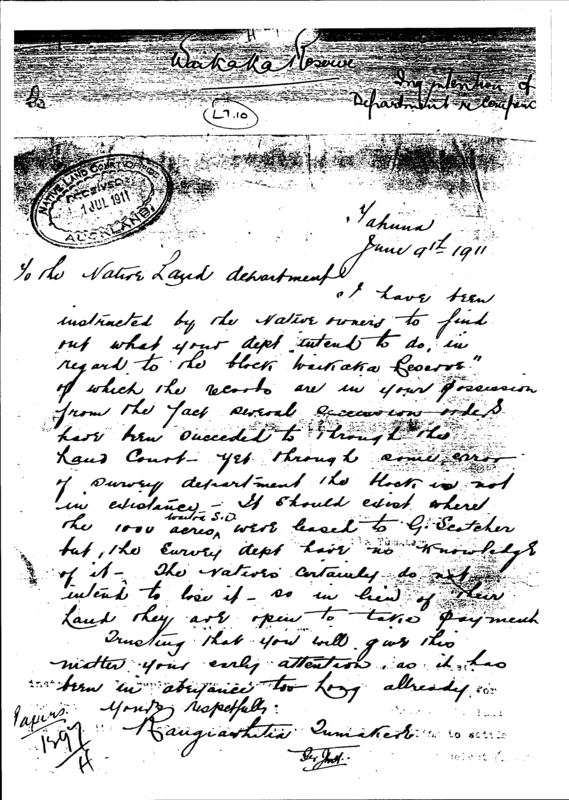 H
Waikaka Reserve
Inq intention of
Department re Compen
L7.10
NATIVE LAND COURT OFFICE
RECEIVED
1 JUL 1911
AUCKLAND
Tahuna
June 9th 1911
To the Native Land department
I have been
instructed by the Native owners to find
out what your dept intend to do, in
regard to the block "Waikaka Reserve"
of which the records are in your possession
from the fact several succession orders
have been succeeded to through the
Land Court - yet through some error
of survey department the block is not
in existance - It should exist where
the 1000 acres waitoa S.D. were leased to G. Scotcher
but, the Survey dept have no knowledge
of it - The Natives certainly do not
intend to lose it - so in lieu of their
Land they are open to take payment
Trusting that you will give this
matter your early attention, as it has
been in abeyance too long allready
Yours respectfully
for
to settle
Papers
1397
H